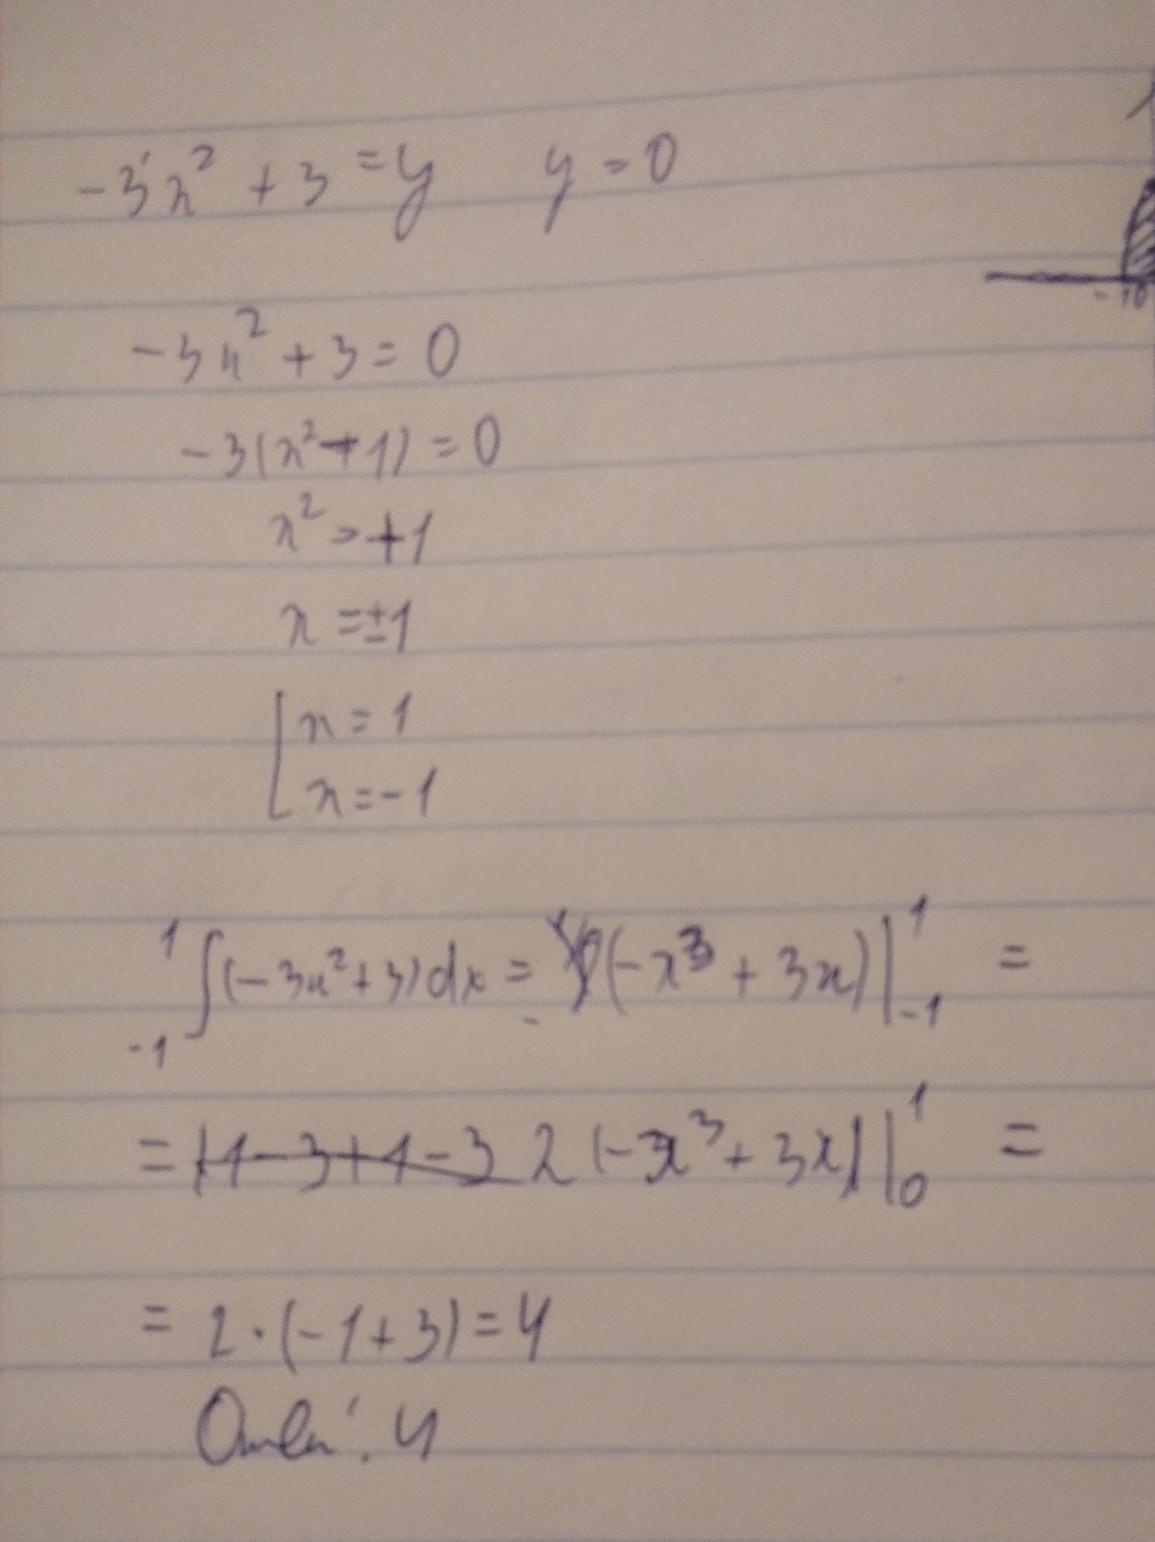 -3x² + 3 = y   y = 0
-10
-3x² + 3 = 0
-3(x² + 1) = 0
x² = +1
x = ±1
[ x = 1
x = -1
₋₁∫¹ (-3x² + 3) dx = (-x³ + 3x) |₋₁¹ =
= 2 (-3x³ + 3x) |₀¹ =
= 2 · (-1 + 3) = 4
Ответ: 4